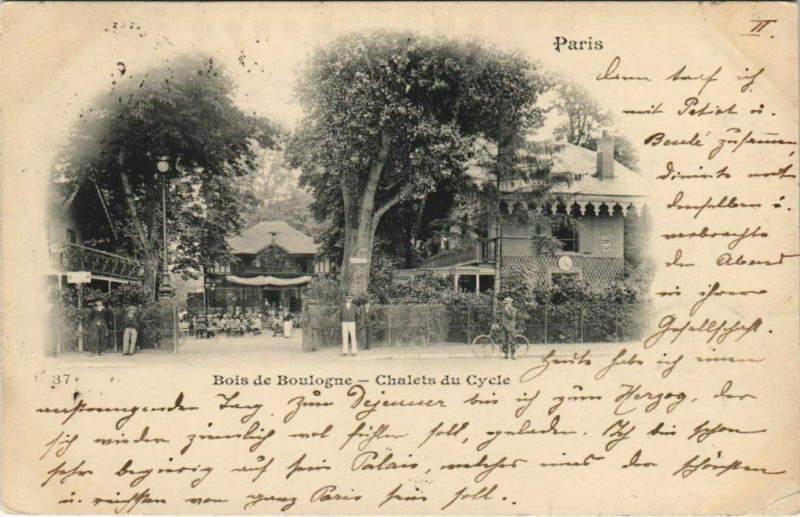 II.
Paris
dann traf ich
mit Petiet u.
Boulé zusammen,
dinirte mit
denselben u.
verbrachte
den Abend
in ihrer
Gesellschaft.
37
Bois de Boulogne – Chalets du Cycle
Heute habe ich einen
anstrengenden Tag. Zum Dejeuner bin ich zum Herzog, der
sich wieder ziemlich wol fühlen soll, geladen. Ich bin schon
sehr begierig auf sein Palais, welches eines der schönsten
u. reichsten von ganz Paris sein soll.